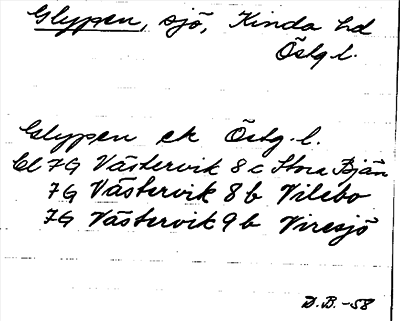 Glypen, sjö, Kinda hd
Östg l.
Glypen ek Östg. l.
bl 7G Västervik 8 c Stora Bjän
7G Västervik 8 b Vilebo
7G Västervik 9 b Viresjö
D.B. -58